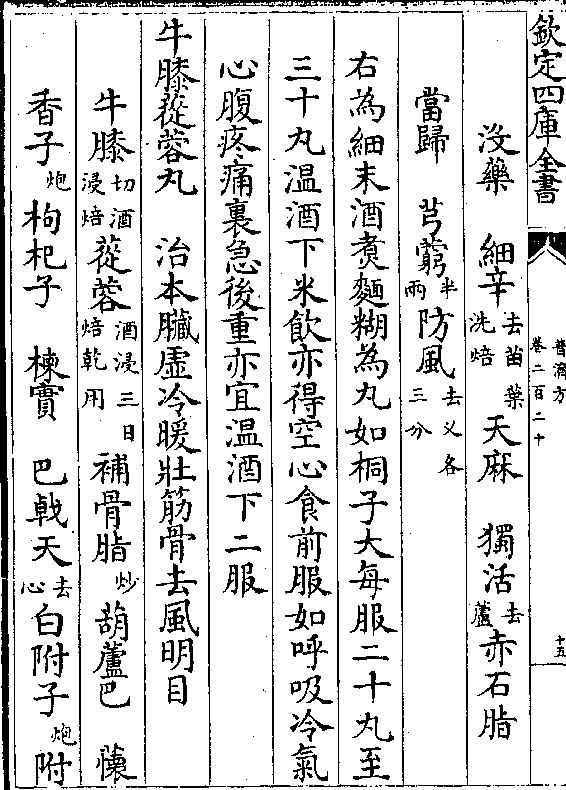 欽定四庫全書
普濟方
卷二百二十
十五
沒藥 細辛去苗葉洗焙 天麻 獨活去蘆 赤石脂
當歸 芎藭半兩 防風去义各三分
右為細末酒煮麵糊為丸如桐子大每服二十丸至
三十丸温酒下米飲亦得空心食前服如呼吸冷氣
心腹疼痛裏急後重亦宜温酒下二服
牛膝蓯蓉丸 治本臟虛冷暖壯筋骨去風明目
牛膝切酒浸焙 蓯蓉酒浸三日焙乾用 補骨脂炒 葫蘆巴 懐
香子炮 枸杞子 楝實 巴戟天去心 白附子炮 附